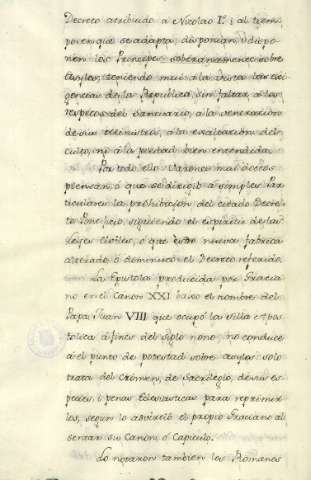 Decreto atribuido á Nicolao I.º i al tiem-
po en que se adapta, disponian, ó dispo-
nen los Principes soberanamente sobre
Asylos, teniendo mui á la vista las exi-
gencias de la Republica, sin faltar, á los
respetos del Santuario, á la veneracion
de sus Ministros, á la exaltacion del
culto, ni á la piedad bien entendida.
Por todo ello Varones mui doctos
piensan, ó que se dirigió á simples Par-
ticulares la prohibicion del citado Decre-
to Pontificio, siguiendo el espiritu de las
Leyes Civiles, ó que
el Decreto referido.
La Epistola producida por Gracia
no en el Canon XXI baxo el nombre del
Papa Juan VIII que ocupó la Silla Apos
tolica á fines del Siglo nono, no conduce
á el punto de potestad sobre asylos: solo
trata del Crimen, de Sacrilegio, de sus es
pecies, i penas Eclesiasticas para reprimir
los, segun lo advirtió el propio Graciano al
sentar su Canon, ó Capitulo.
Lo notaron tambien los Romanos